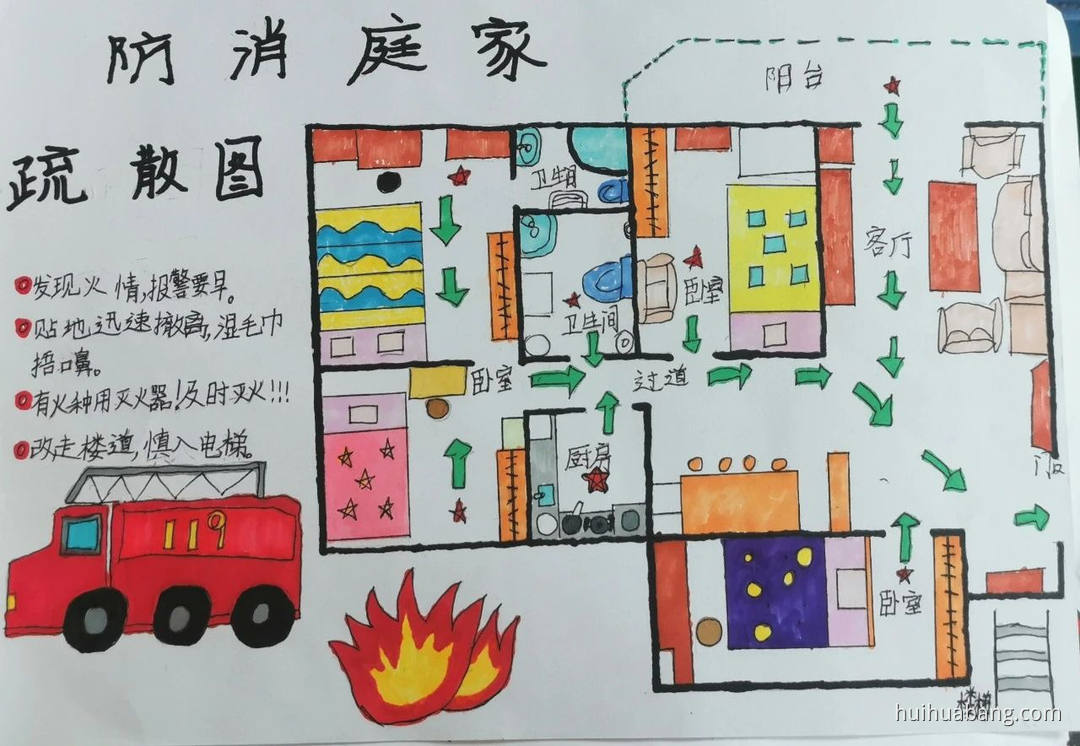 防消庭家
疏散图
发现火情,报警要早。
贴地迅速撤离,湿毛巾
捂口鼻。
有火种用灭火器!及时灭火!!!
改走楼道,慎入电梯。
119
阳台
卫生间
客厅
卧室
卫生间
卧室
过道
厨房
门口
卧室
楼梯
huihuabang.com